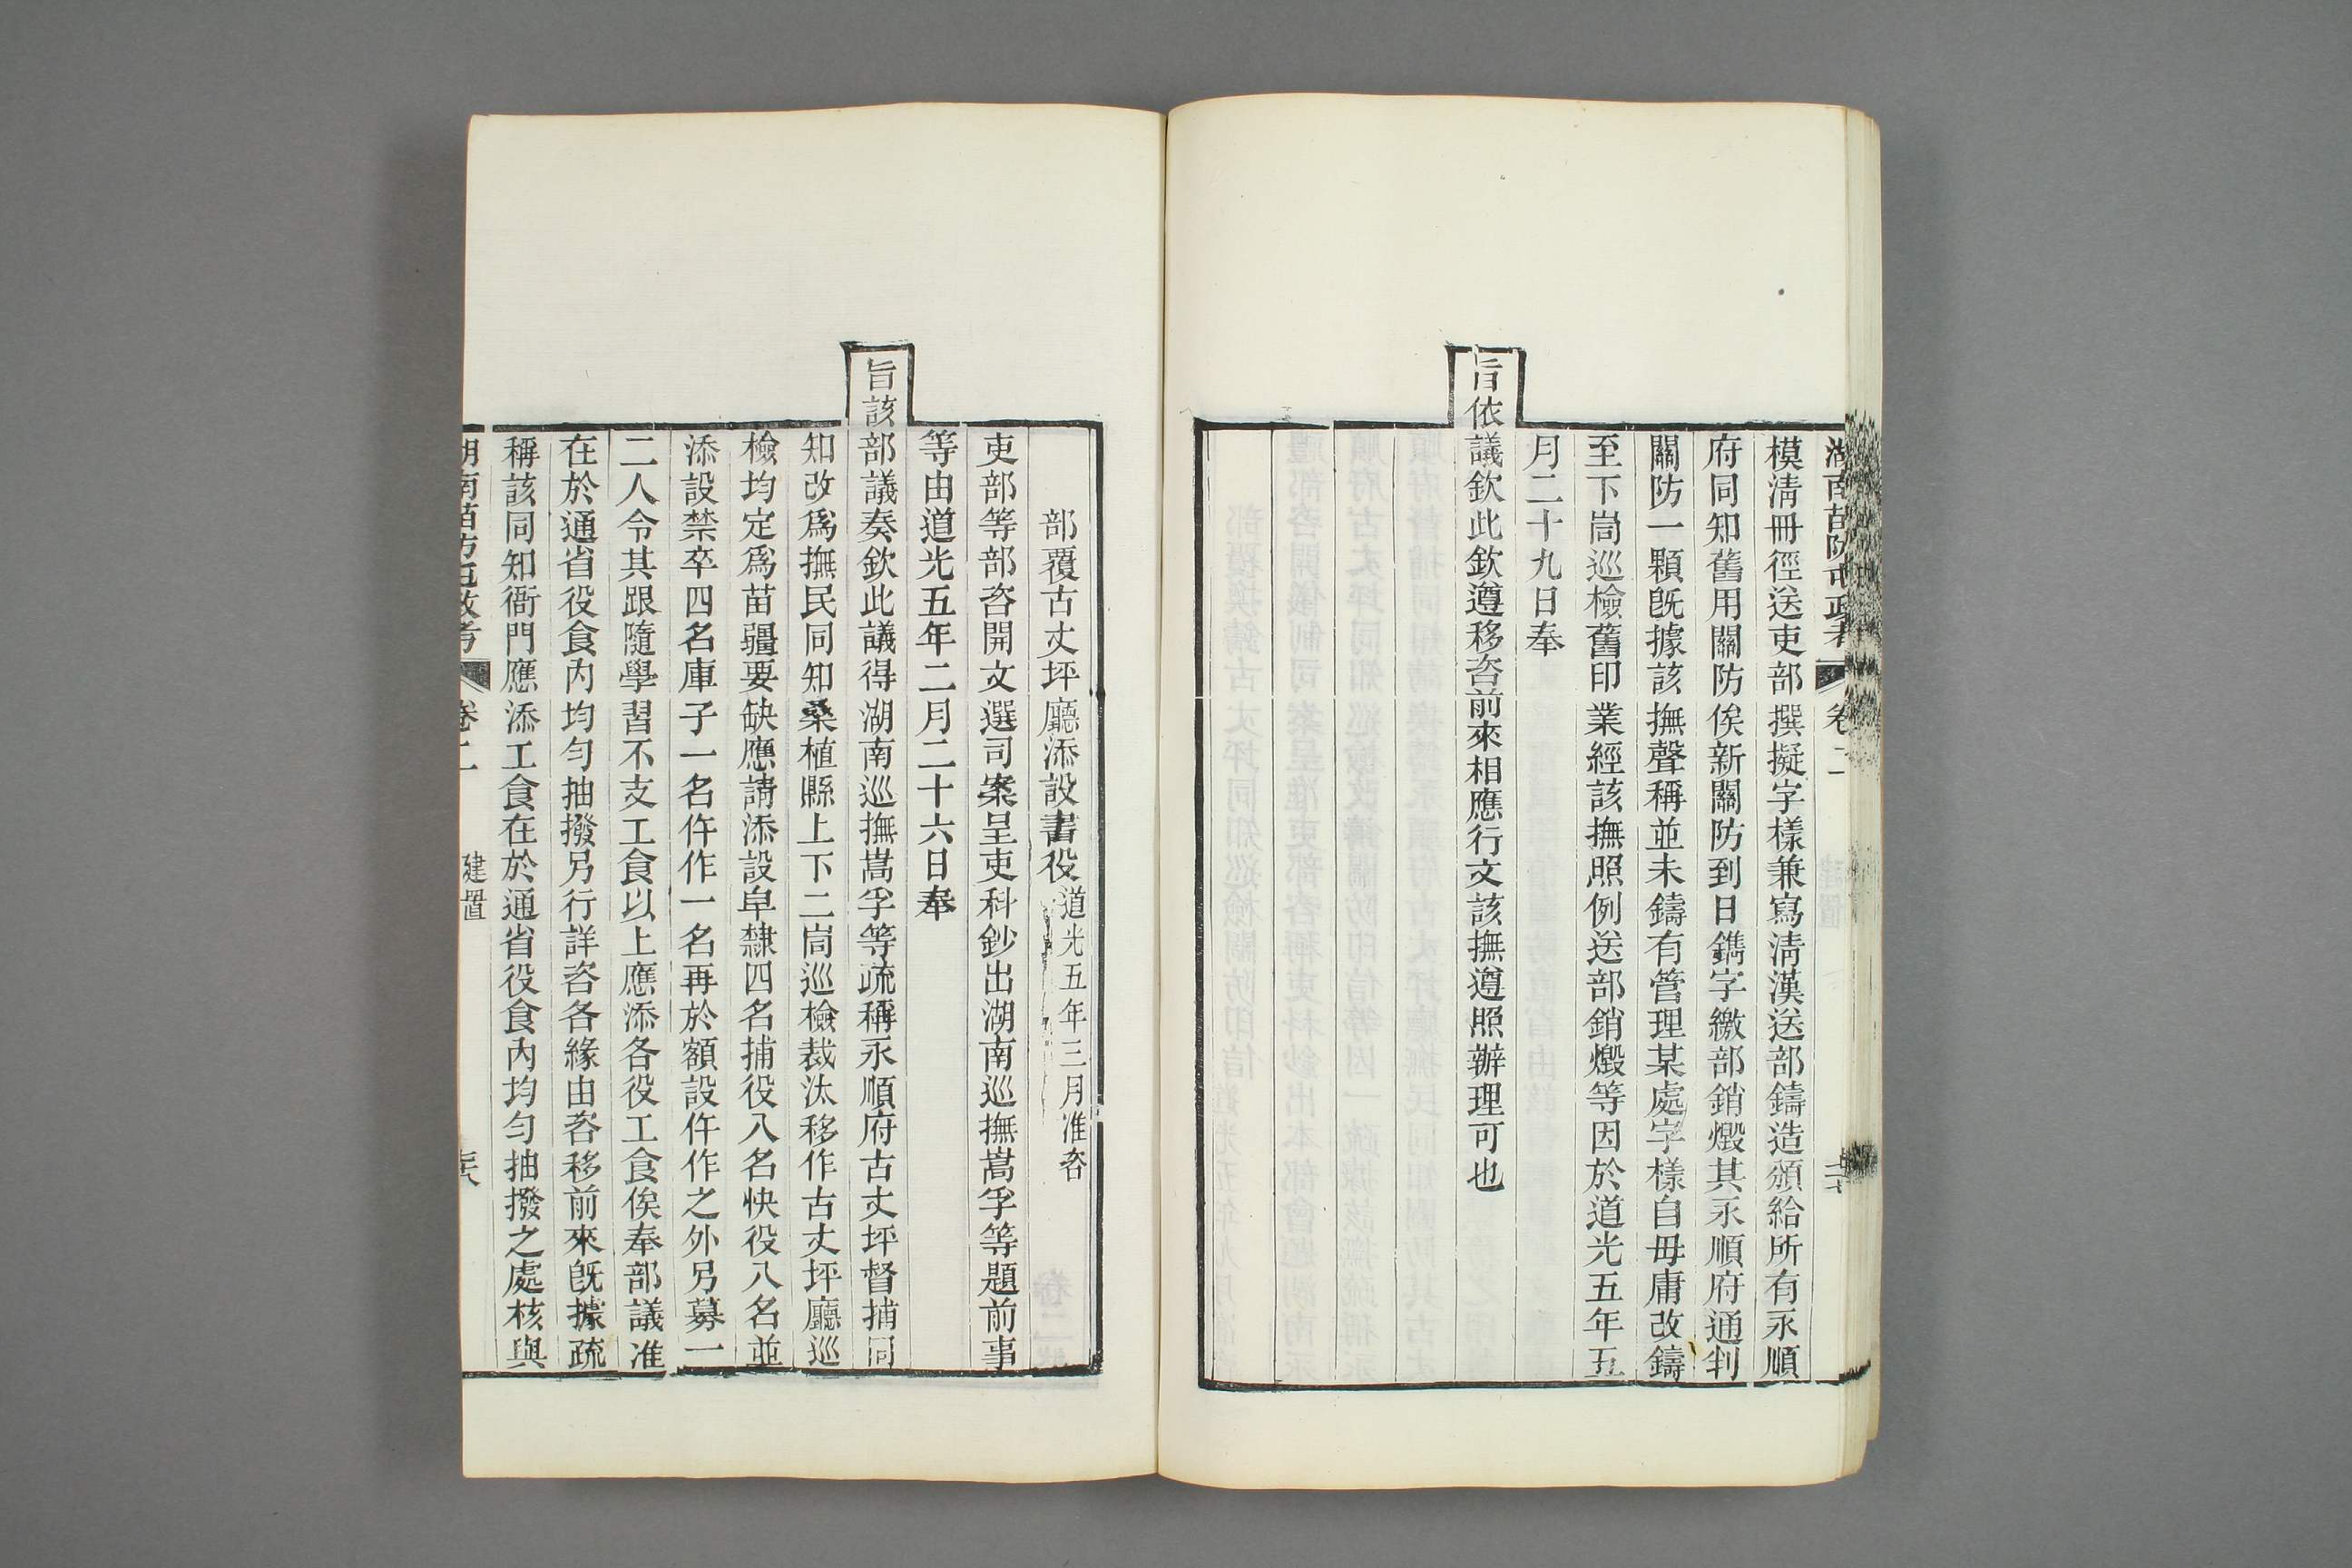 湖南苗防屯政考 卷二
模淸冊徑送吏部撰擬字樣兼寫淸漢送部鑄造頒給所有永順
府同知舊用關防俟新關防到日鐫字繳部銷燬其永順府通判
關防一顆旣據該撫聲稱並未鑄有管理某處字樣自毋庸改鑄
至下峝巡檢舊印業經該撫照例送部銷燬等因於道光五年五
月二十九日奉
旨依議欽此欽遵移咨前來相應行文該撫遵照辦理可也
部覆古丈坪廳添設書役 道光五年三月准咨
吏部等部咨開文選司案呈吏科鈔出湖南巡撫嵩孚等題前事
等由道光五年二月二十六日奉
旨該部議奏欽此議得湖南巡撫嵩孚等疏稱永順府古丈坪督捕同
知改爲撫民同知桑植縣上下二峝巡檢裁汰移作古丈坪廳巡
檢均定爲苗疆要缺應請添設皁隸四名捕役八名快役八名並
添設禁卒四名庫子一名仵作一名再於額設仵作之外另募一
二人令其跟隨學習不支工食以上應添各役工食俟奉部議准
在於通省役食內均勻抽撥另行詳咨各緣由咨移前來旣據疏
稱該同知衙門應添工食在於通省役食內均勻抽撥之處核與
湖南苗防屯政考 卷二 建置